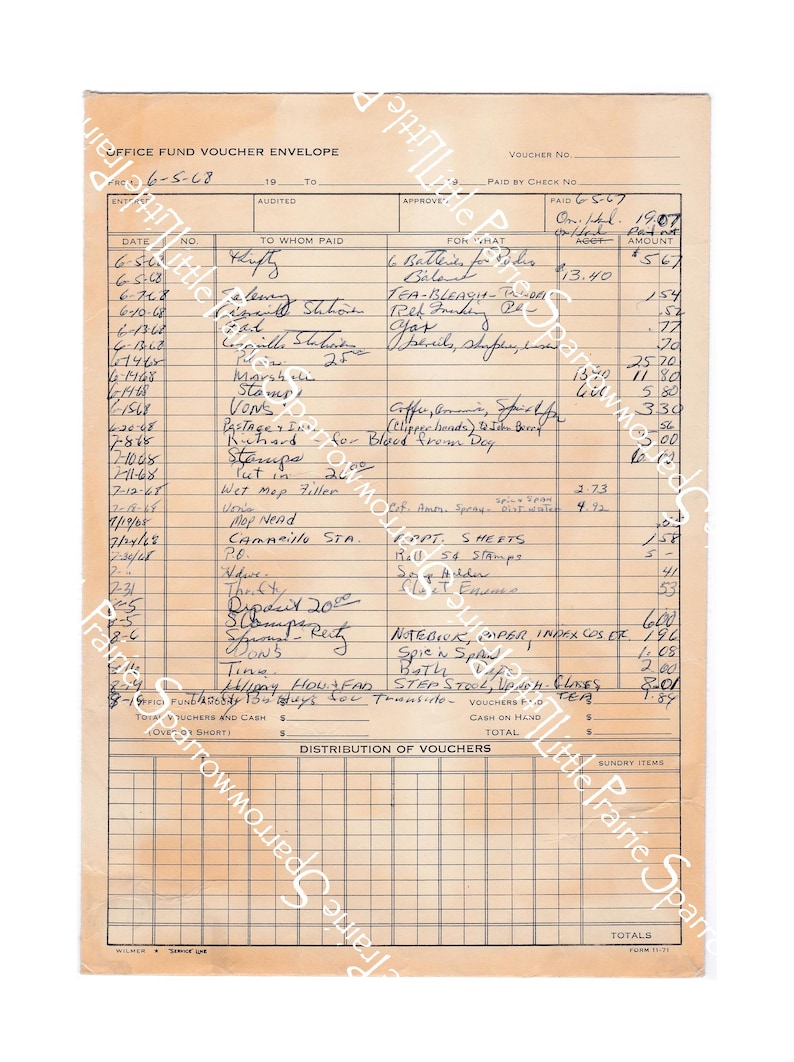 OFFICE FUND VOUCHER ENVELOPE
VOUCHER NO.
FROM 6-5-68 19 TO 19 PAID BY CHECK NO.
ENTERED AUDITED APPROVED PAID 6-5-67
On. Hand. 19.07
on Hand Paid out
DATE NO. TO WHOM PAID FOR WHAT ACCT. AMOUNT
6-5-68 Thrifty 6 Batteries for Radio $5.67
6-5-68 Balance $13.40
6-7-68 Safeway TEA-BLEACH- 1.54
6-10-68 Stationers Red Pen .52
6-13-68 Ajax .77
6-13-68 Camarillo Stationers pencils, .70
6-14-68 Put in 25.00 25 70
6-14-68 Marshall 1340 11 80
6-14-68 Stamps 600 5 80
6-15-68 VONS Coffee, 3.30
6-20-68 Postage & Ins. (Clipper heads) to John Berry .56
7-8-68 Richard for Blood from Dog 5.00
7-10-68 Stamps 6.
7-11-68 Put in 20.00
7-12-68 Wet Mop Filler 2.73
7-18-68 Von's Cof. Amon. Spray- Spic & Span Dist. Water 4.92
7/19/68 Mop Head
7/24/68 CAMARILLO STA. RPPT. SHEETS 1 58
7-30/68 P.O. Roll 5¢ Stamps 5 -
7- " Hdwe. Soap Holder 41
7-31 Thrifty Fleet Enemas 53
8-5 Deposit 20.00
8-5 Stamps 6 00
8-6 Sprouse-Reitz NOTEBOOK, PAPER, INDEX CDS. ETC. 1.96
VON'S Spic'n Span 1.08
Tina Bath 2 00
8-14 Holiday Hdw. STEP STOOL, CLOSES, 8.01
8-16 Thrifty Battery's for Transistor TEA 1.84
OFFICE FUND AMOUNT $ VOUCHERS PAID $
TOTAL VOUCHERS AND CASH $ CASH ON HAND $
(OVER OR SHORT) $ TOTAL $
DISTRIBUTION OF VOUCHERS
SUNDRY ITEMS
TOTALS
WILMER ★ "SERVICE" LINE FORM 11-71
Little Prairie Sparrow